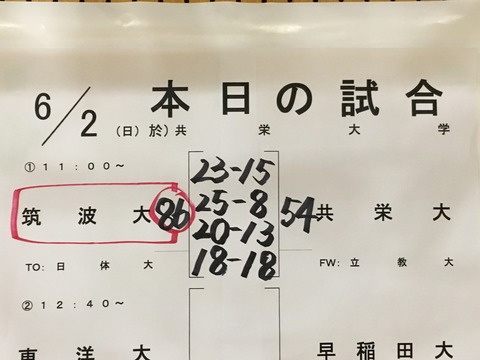 6/2 本日の試合
(日)於)共栄大学
①11:00～
23-15
筑波大 86 25-8 54 共栄大
20-13
18-18
TO:日体大 FW:立教大
②12:40～
東洋大 早稲田大